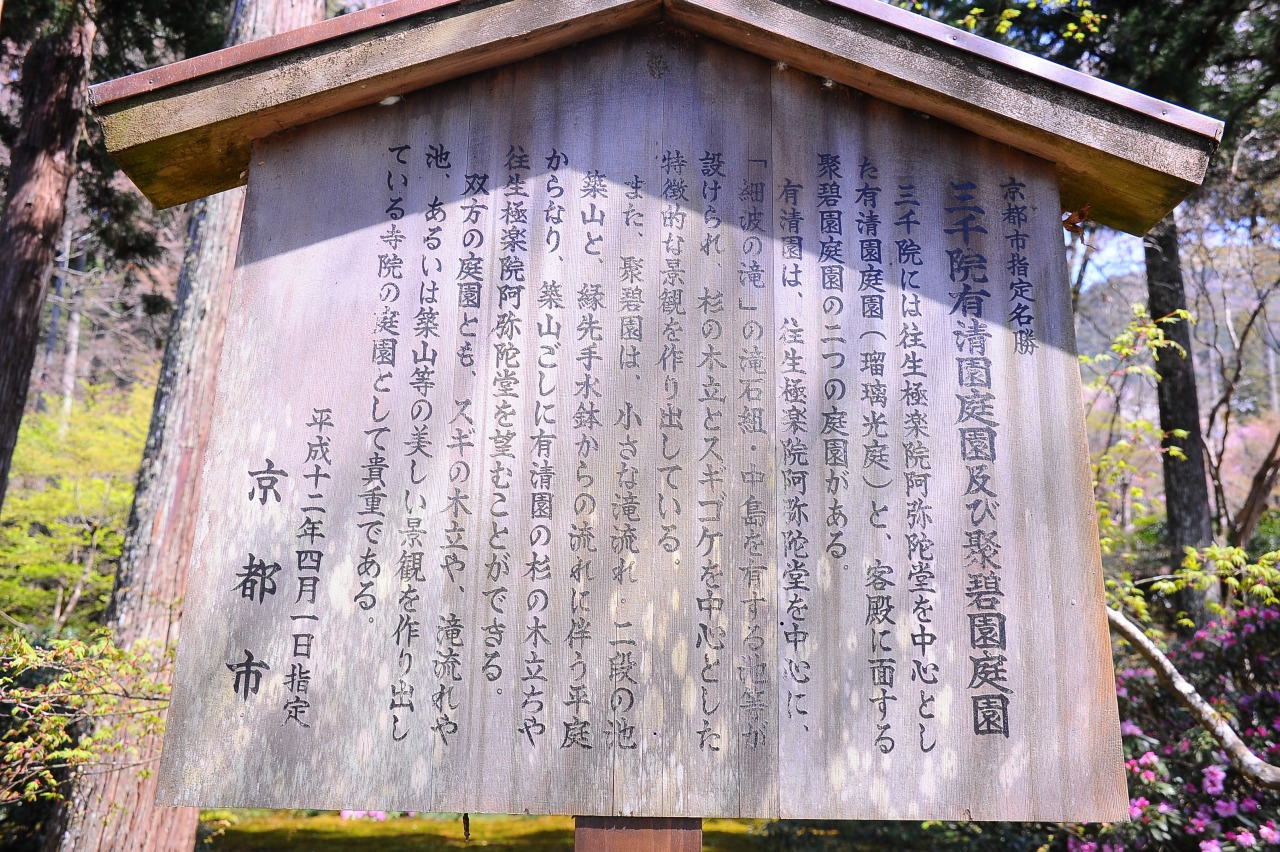 京都市指定名勝
三千院有清園庭園及び聚碧園庭園
三千院には往生極楽院阿弥陀堂を中心とし
た有清園庭園(瑠璃光庭)と、客殿に面する
聚碧園庭園の二つの庭園がある。
有清園は、往生極楽院阿弥陀堂を中心に、
「細波の滝」の滝石組・中島を有する池等が
設けられ、杉の木立とスギゴケを中心とした
特徴的な景観を作り出している。
また、聚碧園は、小さな滝流れ・二段の池
築山と、縁先手水鉢からの流れに伴う平庭
からなり、築山ごしに有清園の杉の木立ちや
往生極楽院阿弥陀堂を望むことができる。
双方の庭園とも、スギの木立や、滝流れや
池、あるいは築山等の美しい景観を作り出し
ている寺院の庭園として貴重である。
平成十二年四月一日指定
京都市